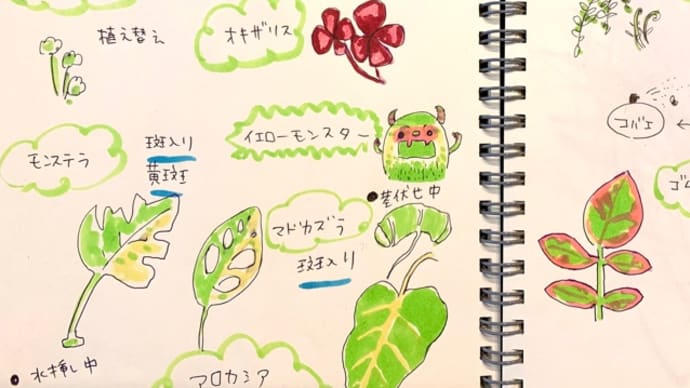 植え替え
オキザリス
コバエ
イエローモンスター
モンステラ
斑入り
黄斑
茎伏せ中
マドカズラ
斑入り
ゴム
水挿し中
アロカシア